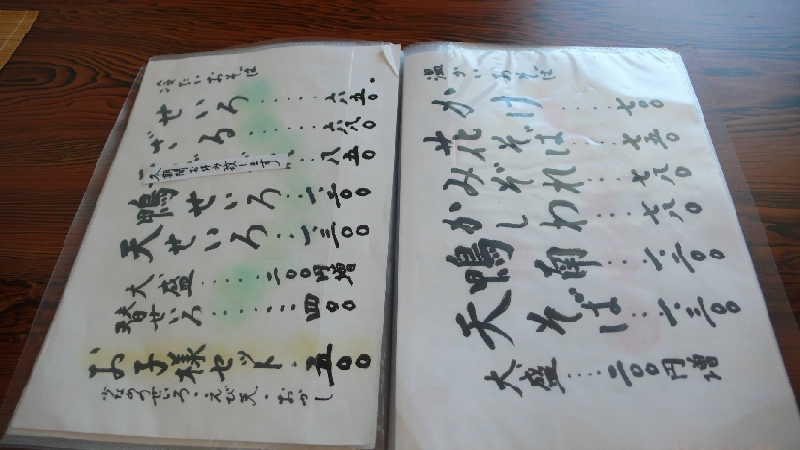 冷たいおそば
せいろ・・・・六五〇
ざる・・・・六八〇
八五〇
冬期間お休み致します
鴨せいろ・・一、二〇〇
天せいろ・・一、三〇〇
大盛・・・・二〇〇円増
替せいろ・・・・四〇〇
お子様セット・五〇〇
少なめのせいろ・えび天・おかし
温かいおそば
かけ・・・・七〇〇
花そば・・・七五〇
みぞれ・・・七八〇
かしわ・・・七八〇
鴨南・・・一、二〇〇
天そば・・一、三〇〇
大盛・・・・二〇〇円増